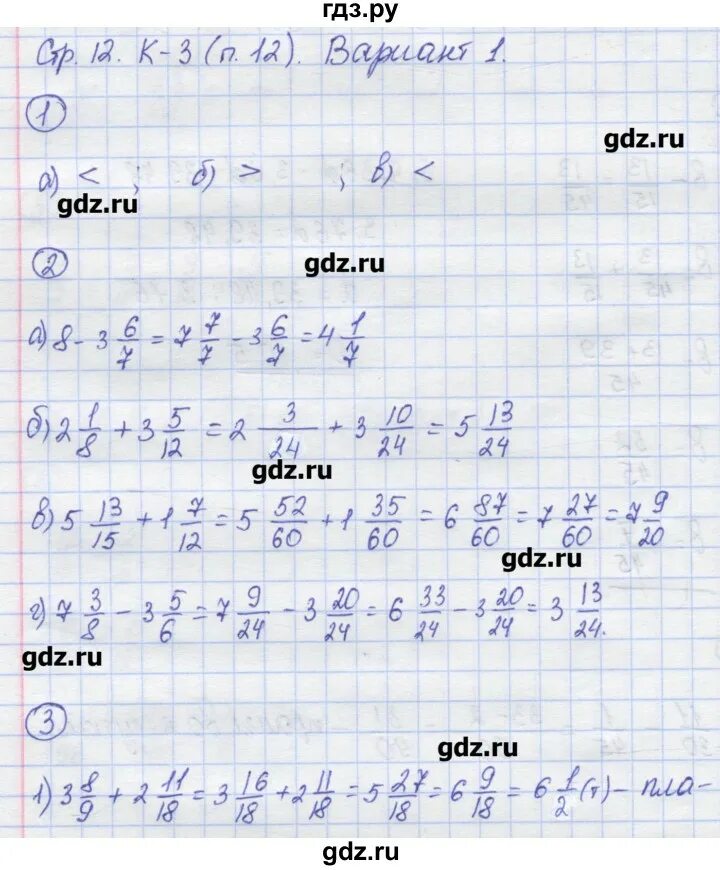 гдз.ру
Стр. 12. К-3 (п. 12). Вариант 1.
1
gdz.ru
а) < ; б) > ; в) <
gdz.ru
2
gdz.ru
а) 8 - 3 6/7 = 7 7/7 - 3 6/7 = 4 1/7
б) 2 1/8 + 3 5/12 = 2 3/24 + 3 10/24 = 5 13/24
gdz.ru
в) 5 13/15 + 1 7/12 = 5 52/60 + 1 35/60 = 6 87/60 = 7 27/60 = 7 9/20
gdz.ru
г) 7 3/8 - 3 5/6 = 7 9/24 - 3 20/24 = 6 33/24 - 3 20/24 = 3 13/24.
gdz.ru
3
gdz.ru
1) 3 8/9 + 2 11/18 = 3 16/18 + 2 11/18 = 5 27/18 = 6 9/18 = 6 1/2 (т) - пла-
gdz.ru